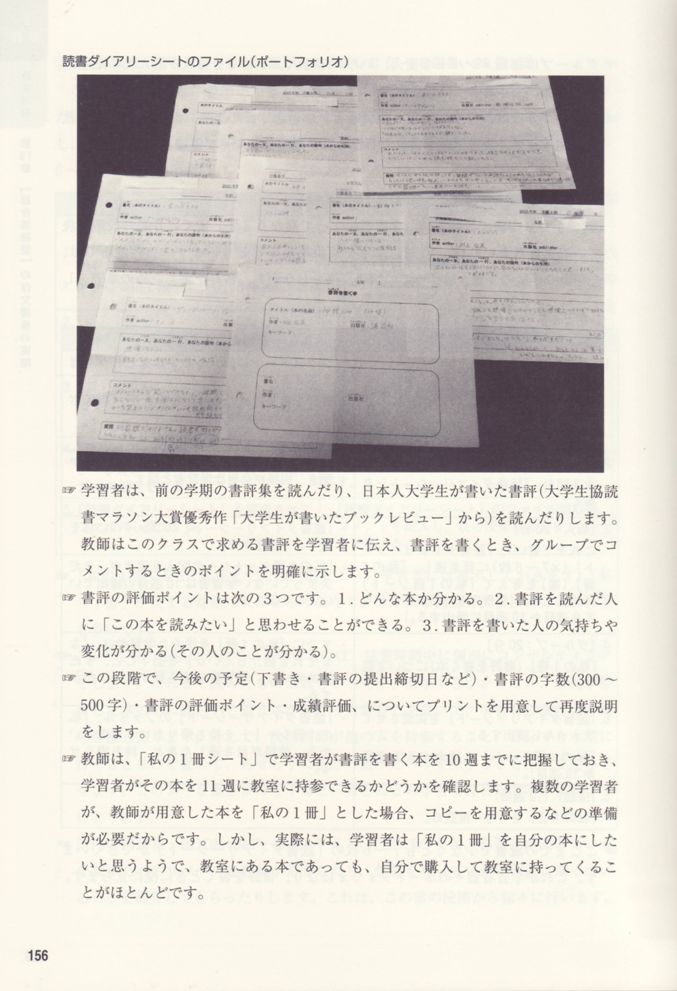 読書ダイアリーシートのファイル(ポートフォリオ)
書評を書く本
タイトル(本の名前)
キーワード
書名
キーワード
コメント
質問
☞ 学習者は、前の学期の書評集を読んだり、日本人大学生が書いた書評(大学生協読
書マラソン大賞優秀作「大学生が書いたブックレビュー」から)を読んだりします。
教師はこのクラスで求める書評を学習者に伝え、書評を書くとき、グループでコ
メントするときのポイントを明確に示します。
☞ 書評の評価ポイントは次の3つです。1.どんな本か分かる。2.書評を読んだ人
に「この本を読みたい」と思わせることができる。3.書評を書いた人の気持ちや
変化が分かる(その人のことが分かる)。
☞ この段階で、今後の予定(下書き・書評の提出締切日など)・書評の字数(300〜
500字)・書評の評価ポイント・成績評価、についてプリントを用意して再度説明
をします。
☞ 教師は、「私の1冊シート」で学習者が書評を書く本を10週までに把握しておき、
学習者がその本を11週に教室に持参できるかどうかを確認します。複数の学習者
が、教師が用意した本を「私の1冊」とした場合、コピーを用意するなどの準備
が必要だからです。しかし、実際には、学習者は「私の1冊」を自分の本にした
いと思うようで、教室にある本であっても、自分で購入して教室に持ってくるこ
とがほとんどです。
156